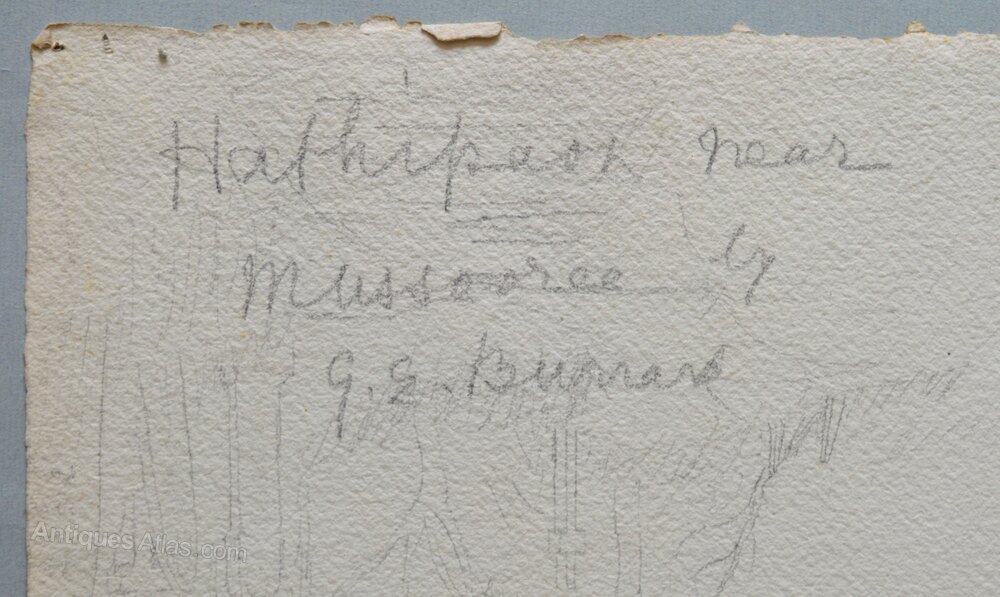 Hathipaon near
Mussooree by
G. E. Burrard
Antiques Atlas.com